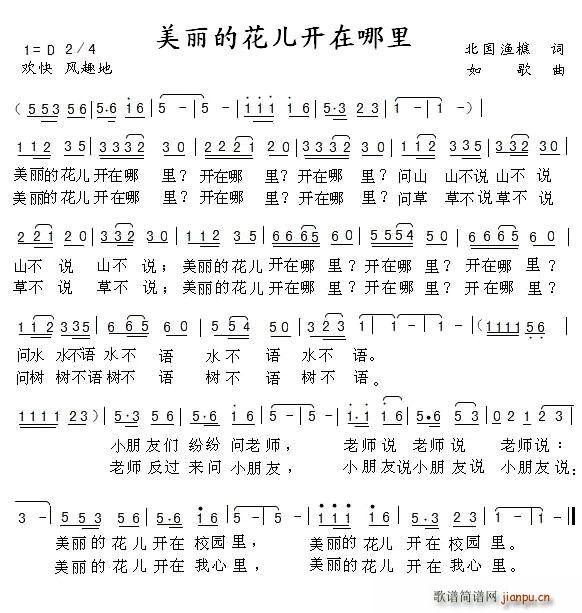 美丽的花儿开在哪里
1=D 2/4
北国渔樵 词
欢快 风趣地
如 歌 曲
(553 56 | 5·6 i6 | 5 - | 5 - | iii i6 | 5·3 23 | 1 - | 1 - ) |
112 35 | 3332 30 | 2221 20 | 3332 30 | 112 335 | 332 30 |
美丽的花儿 开在哪 里? 开在哪 里? 开在哪 里? 问山 山不说 山不 说
美丽的花儿 开在哪 里? 开在哪 里? 开在哪 里? 问草 草不说 草不 说
221 20 | 332 30 | 112 35 | 6665 60 | 5554 50 | 6665 60 |
山不 说 山不 说; 美丽的花儿 开在哪 里? 开在哪 里? 开在哪 里?
草不 说 草不 说; 美丽的花儿 开在哪 里? 开在哪 里? 开在哪 里?
112 335 | 665 60 | 554 50 | 323 | 1 - | 1 - | (1111 56 |
问水 水不语 水不 语 水不 语 水不 语。
问树 树不语 树不 语 树不 语 树不 语。
1111 22) | 5·3 56 | 5·6 i6 | 5 - | 5 - | i·i i6 | 5·6 53 | 021 23 |
小朋友们 纷纷 问老师, 老师说 老师说 老师说:
老师反过 来问 小朋友, 小朋友说 小朋友说 小朋友说:
3 - | 5 553 | 5·6 i6 | 5 - | 5 - | iii i6 | 5·3 23 | 1 - | 1 - ‖
美丽的 花儿 开在 校园 里, 美丽的 花儿 开在 校园 里。
美丽的 花儿 开在 我心 里, 美丽的 花儿 开在 我心 里。
歌谱简谱网
jianpu.cn